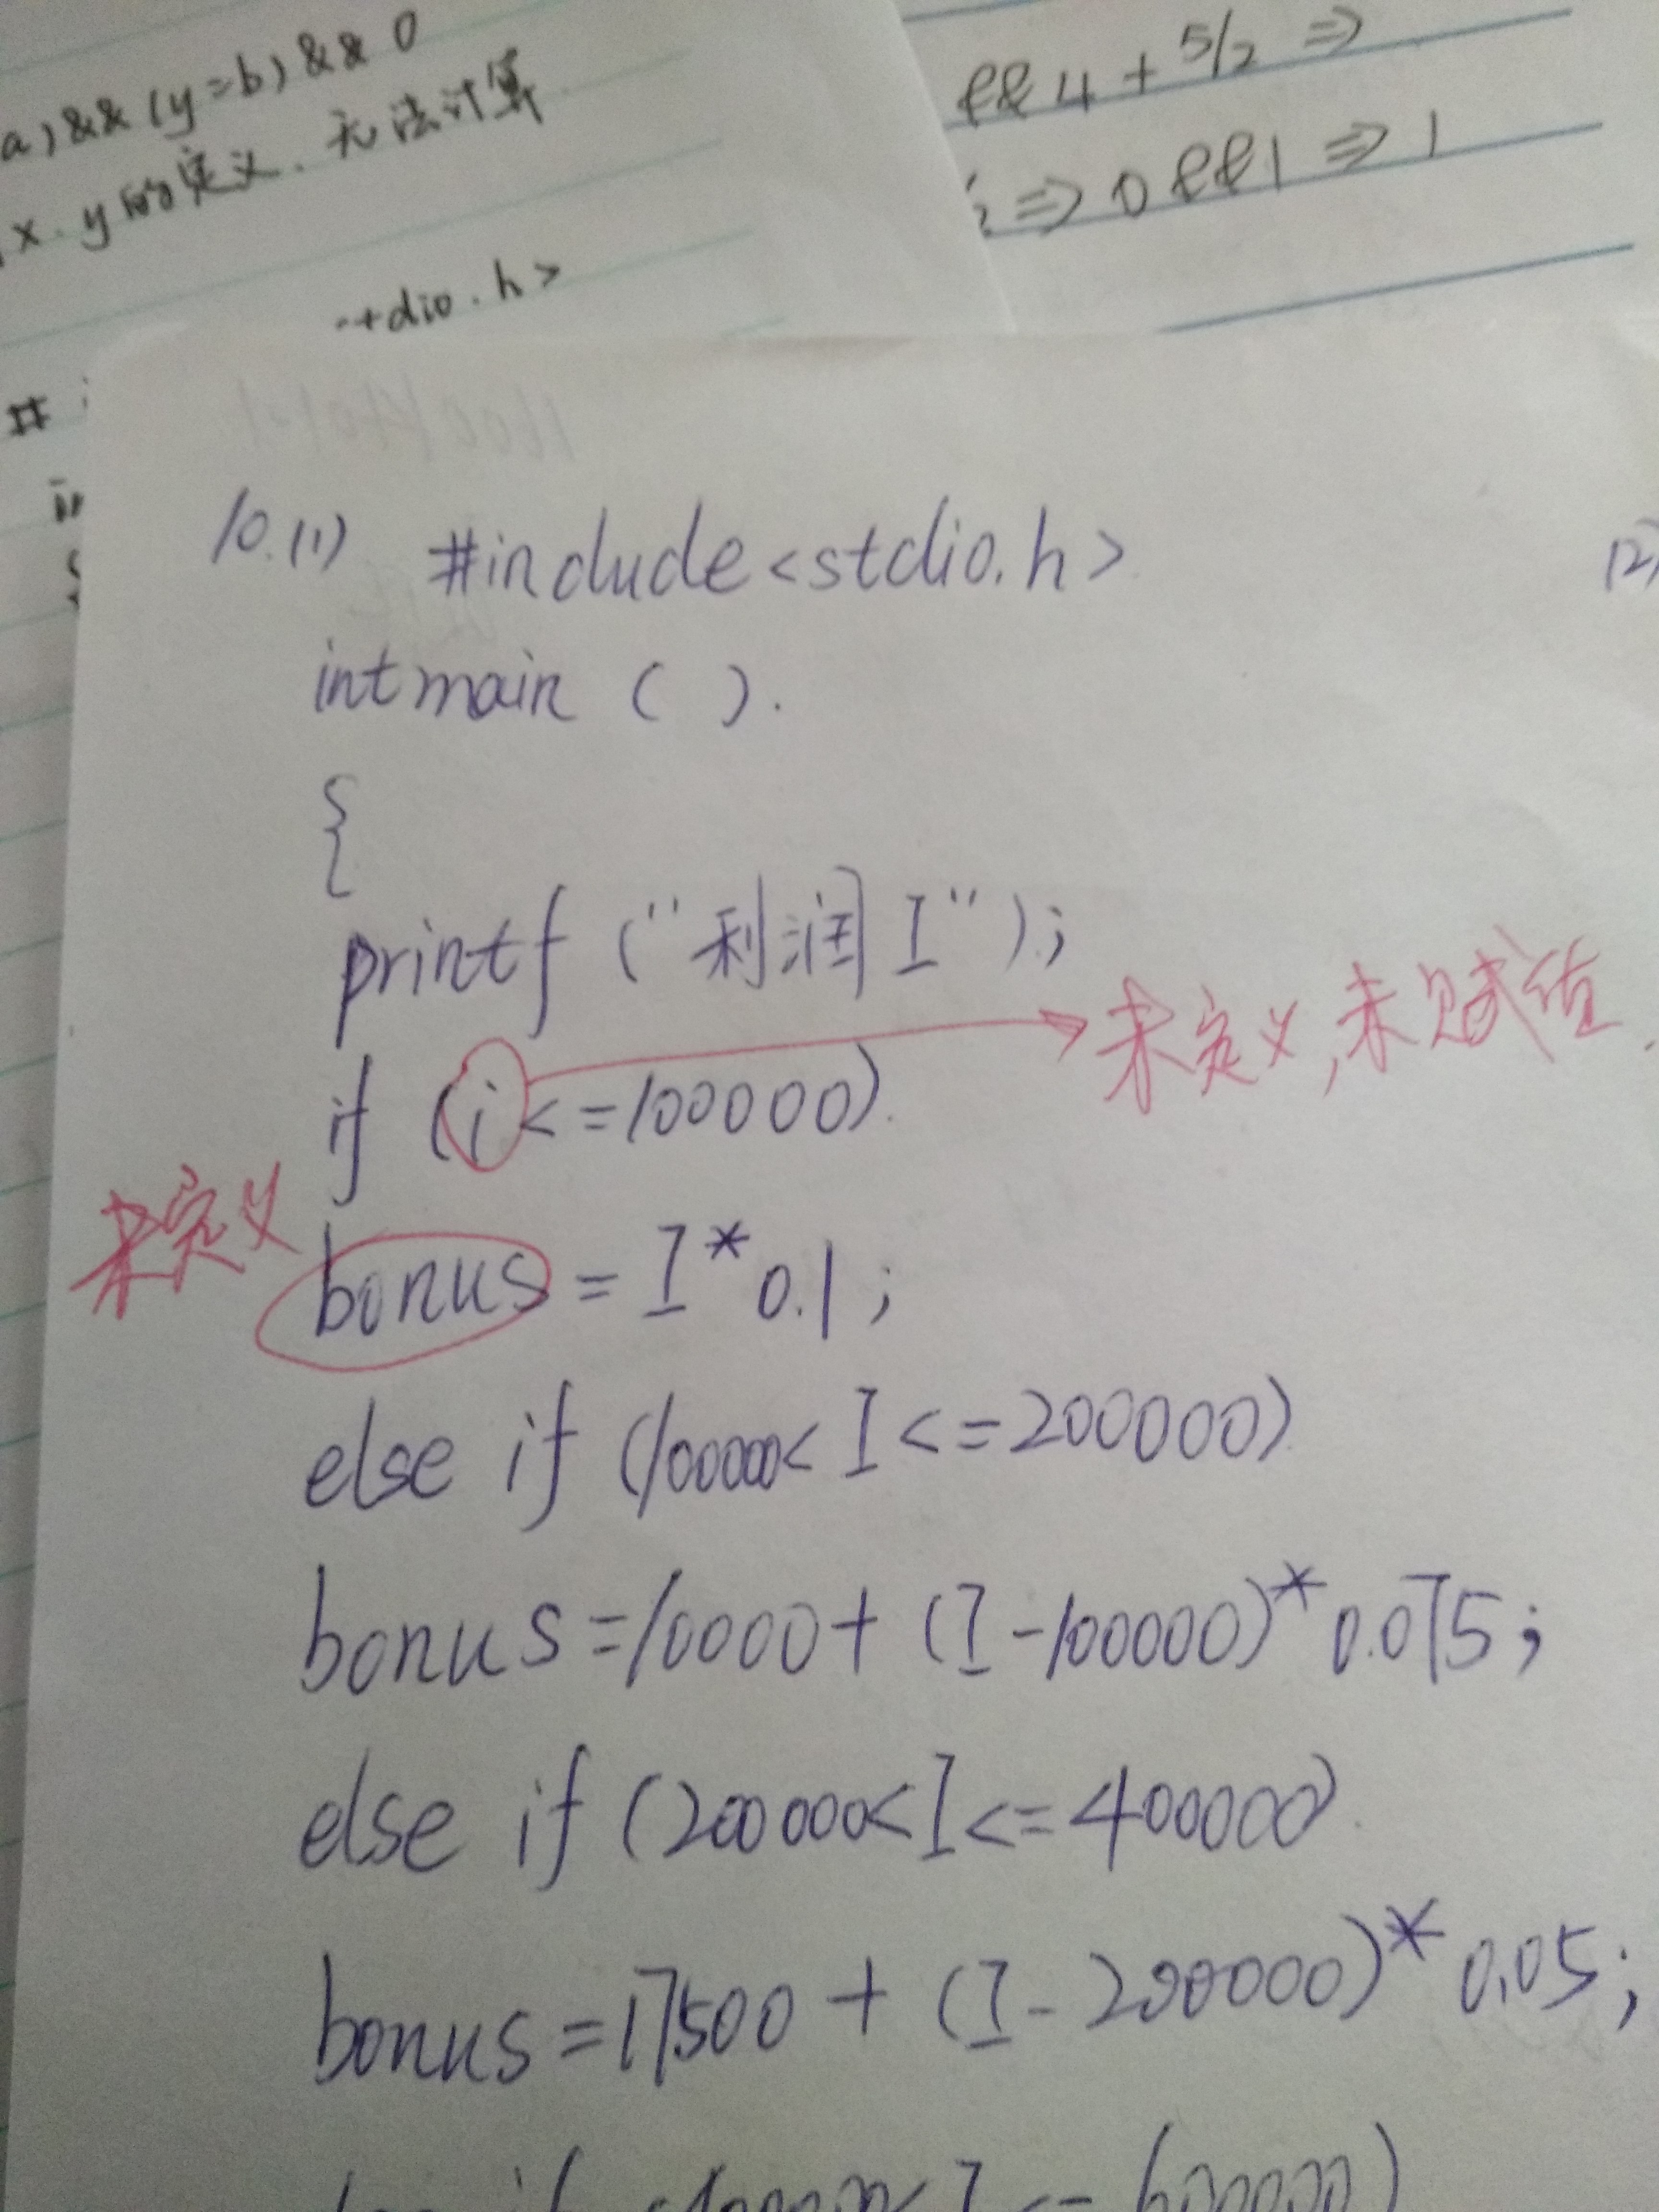 a) && (y=b) && 0
x.y的定义.无法计算
tdio.h>
#
&& 4 + 5/2 =>
=> 0 && 1 => 1
10.(1) #include<stdio.h>
(2)
int main ( ).
{
printf ("利润 I");
未定义,未赋值
if (i<=100000)
未定义
bonus = I*0.1;
else if (100000< I <=200000)
bonus =10000+ (I-100000)*0.075;
else if (200000<I<=400000)
bonus =17500 + (I-200000)*0.05;
I <= 600000)